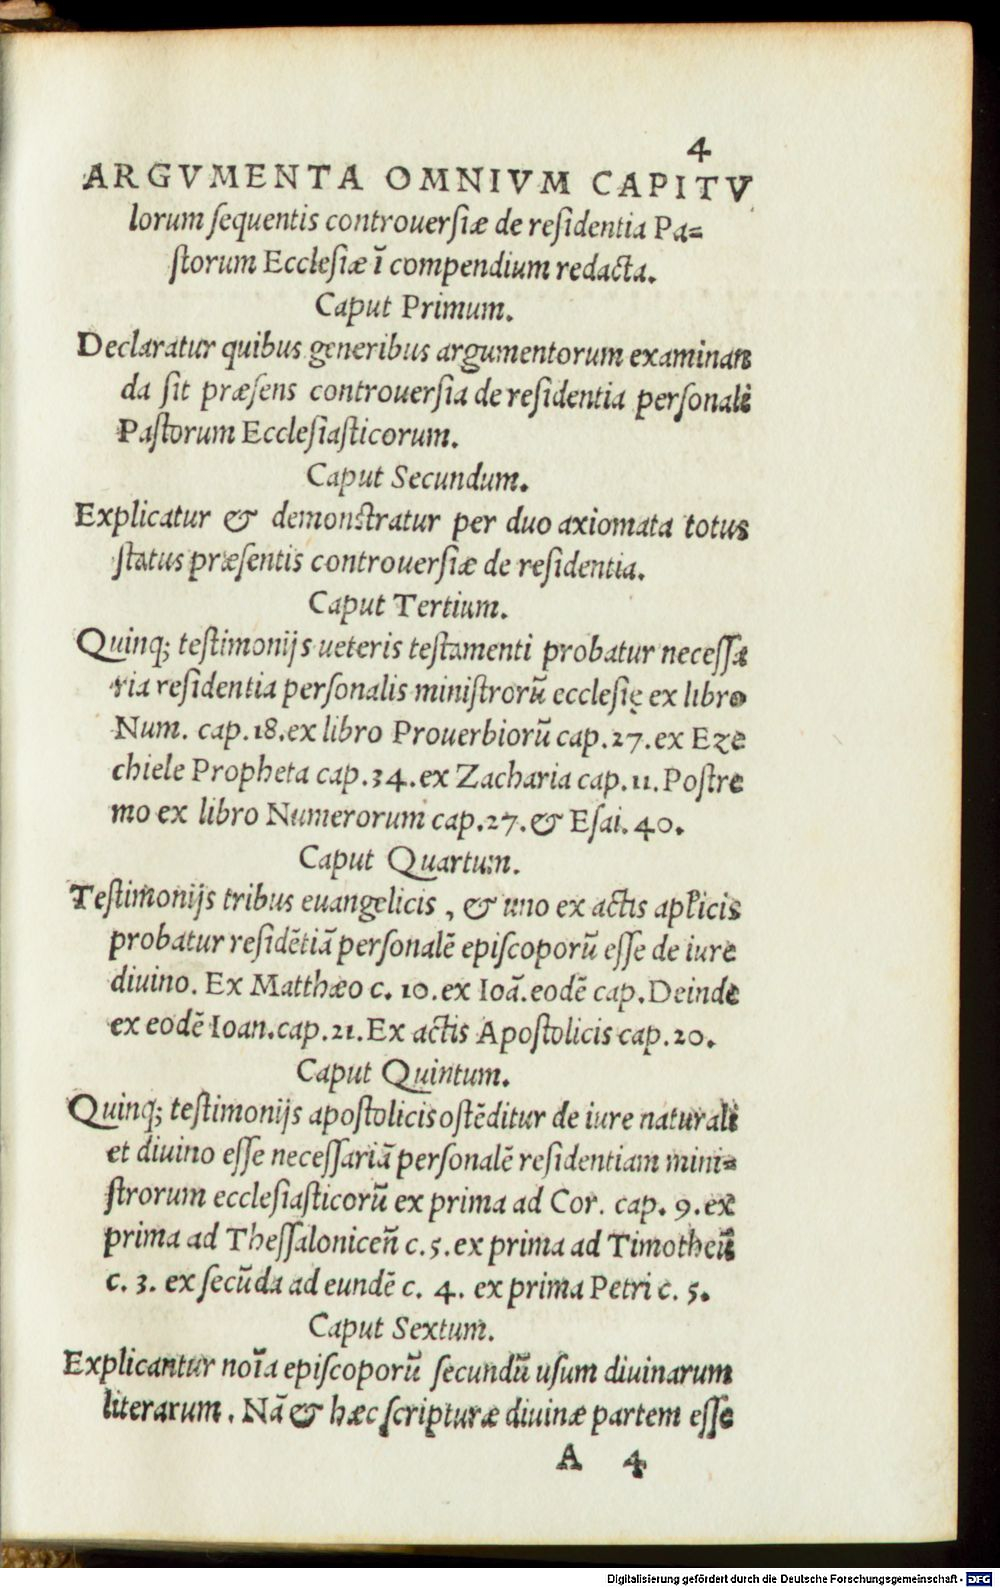 4
ARGVMENTA OMNIVM CAPITV
lorum ſequentis controuerſiæ de reſidentia Pa=
ſtorum Eccleſiæ ī compendium redacta.
Caput Primum.
Declaratur quibus generibus argumentorum examinan
da ſit præſens controuerſia de reſidentia perſonali
Paſtorum Eccleſiaſticorum.
Caput Secundum.
Explicatur & demonſtratur per duo axiomata totus
ſtatus præſentis controuerſiæ de reſidentia.
Caput Tertium.
Quinq; teſtimonijs ueteris teſtamenti probatur neceſſa
ria reſidentia perſonalis miniſtrorū eccleſię ex libro
Num. cap. 18. ex libro Prouerbiorū cap. 27. ex Eze
chiele Propheta cap. 34. ex Zacharia cap. 11. Poſtre
mo ex libro Numerorum cap. 27. & Eſai. 40.
Caput Quartum.
Teſtimonijs tribus euangelicis, & uno ex actis apl̄icis
probatur reſidētiā perſonalē epiſcoporū eſſe de iure
diuino. Ex Matthæo c. 10. ex Ioā. eodē cap. Deinde
ex eodē Ioan. cap. 21. Ex actis Apoſtolicis cap. 20.
Caput Quintum.
Quinq; teſtimonijs apoſtolicis oſtēditur de iure naturali
et diuino eſſe neceſſariā perſonalē reſidentiam mini=
ſtrorum eccleſiaſticorū ex prima ad Cor. cap. 9. ex
prima ad Theſſalonicen̄ c. 5. ex prima ad Timotheū
c. 3. ex ſecūda ad eundē c. 4. ex prima Petri c. 5.
Caput Sextum.
Explicantur noīa epiſcoporū ſecundū uſum diuinarum
literarum. Nā & hæc ſcripturæ diuinæ partem eſſe
A 4
Digitalisierung gefördert durch die Deutsche Forschungsgemeinschaft - DFG